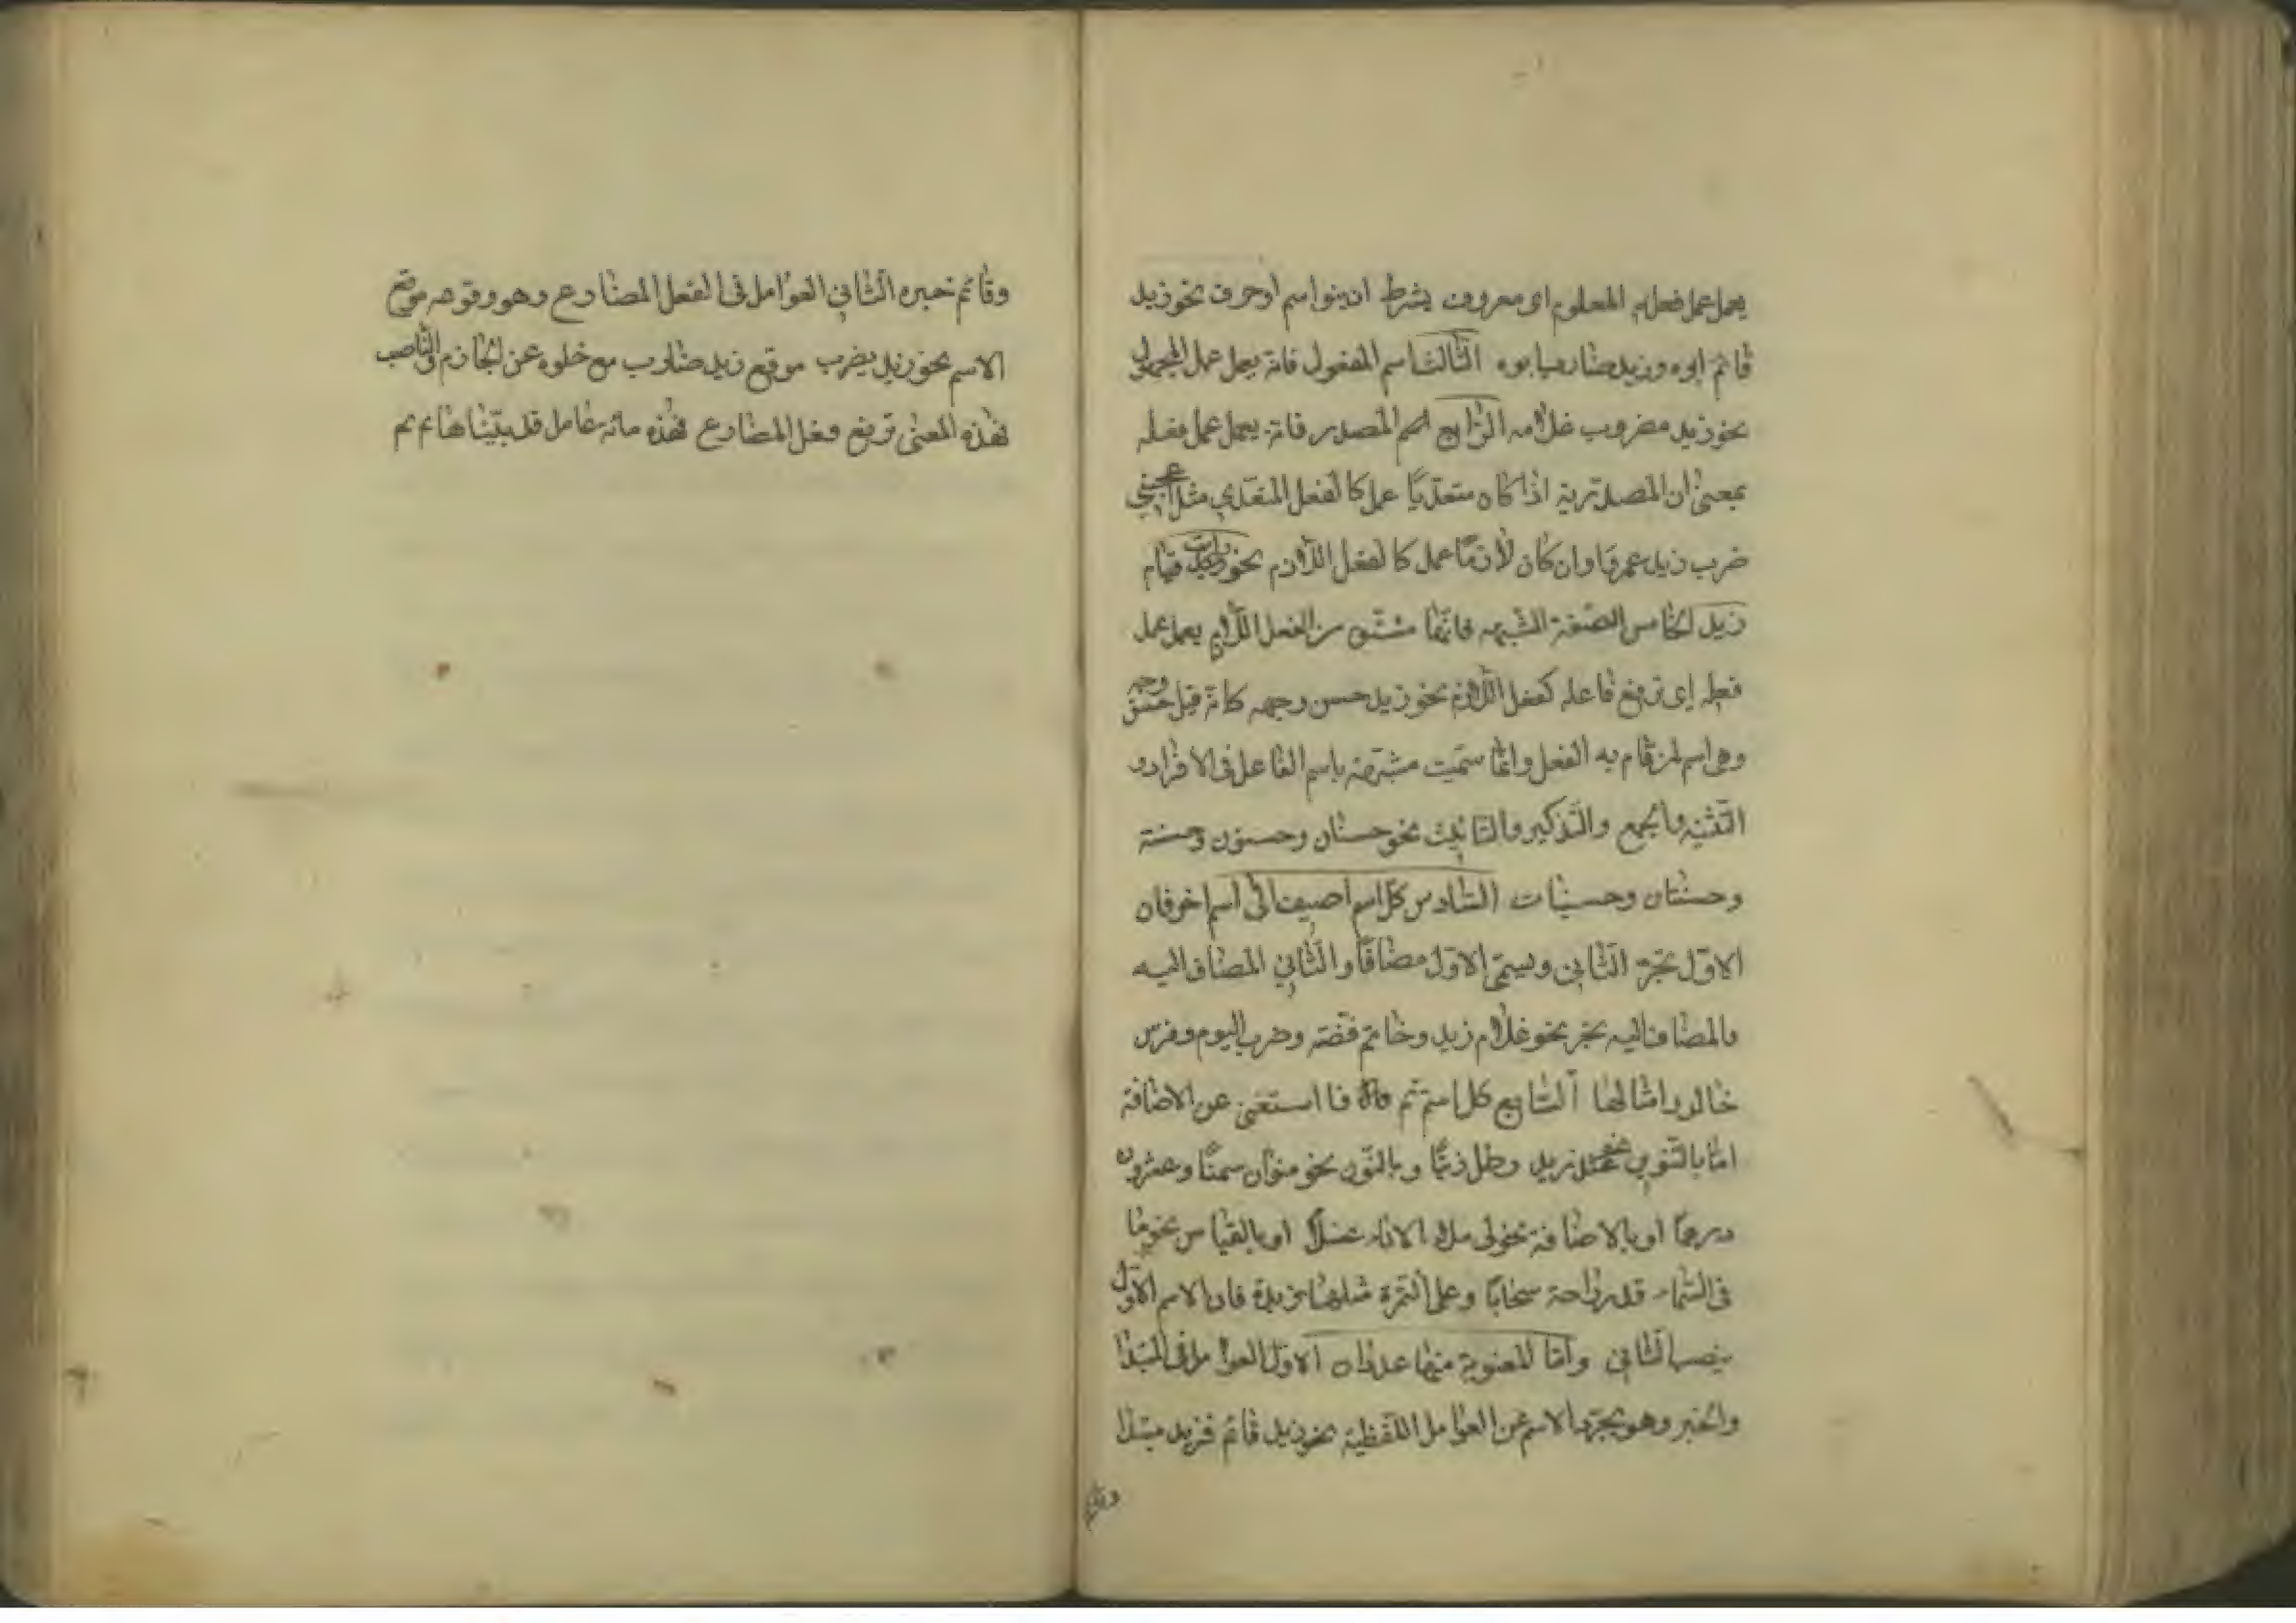 يعمل عمل فعله المعلوم اى معروف بشرط ان ينوا اسم او حرف نحو زيد
قائم ابوه وزيد ضارب ابوه الثالث اسم المفعول فانه يعمل عمل المجهول
نحو زيد مضروب غلامه الرابع اسم المصدر فانه يعمل عمل فعله
بمعنى ان المصدرية اذا كان متعديًا عمل كالفعل المتعدي مثل اعجبني
ضرب زيد عمروا وان كان لازمًا عمل كالفعل اللازم نحو قيام
زيد الخامس الصفة المشبهه فانها مشتق من الفعل اللازم يعمل عمل
فعله اى ترفع فاعله كفعل اللازم نحو زيد حسن وجهه كانه قيل حسن وجهه
وهى اسم لمن قام به الفعل وانما سميت مشبهة باسم الفاعل فى الافراد و
التثنيه والجمع والتذكير والتانيث نحو حسنان وحسنون وحسنة
وحسنتان وحسنات السادس كل اسم اضيف الى اسم اخر فان
الاوّل تجرّ الثانى ويسمّى الاوّل مضافًا والثاني المضاف اليه
والمضاف اليه تجر نحو غلام زيد وخاتم فضّة وضرب اليوم وفرس
خالد وامثالها السابع كل اسم تم فا استغنى عن الاضافة
امّا بالتنوين نحو زيد رطل زيتًا وبالنّون نحو منوان سمنًا وعشرون
درهمًا او بالاضافة نحو لى ملؤ الاناء عسلاً او بالقياس نحو ما
فى السّماء قدر راحة سحابًا وعلى التمرة مثلها زبدة فان الاسم الاوّل
ينصب الثانى وامّا المعنوية منها عددان الاوّل العوامل فى المبتدا
والخبر وهو تجرّد الاسم عن العوامل اللفظية نحو زيد قائم فزيد مبتدا
وقائم
وقائم خبره الثاني العوامل فى الفعل المضارع وهو وقوعه موقع
الاسم نحو زيد يضرب موقع زيد ضارب مع خلوه عن الجازم والنّاصب
فهذه المعنى ترفع فعل المضارع فهذه مائه عامل قد بيّناها تم تم